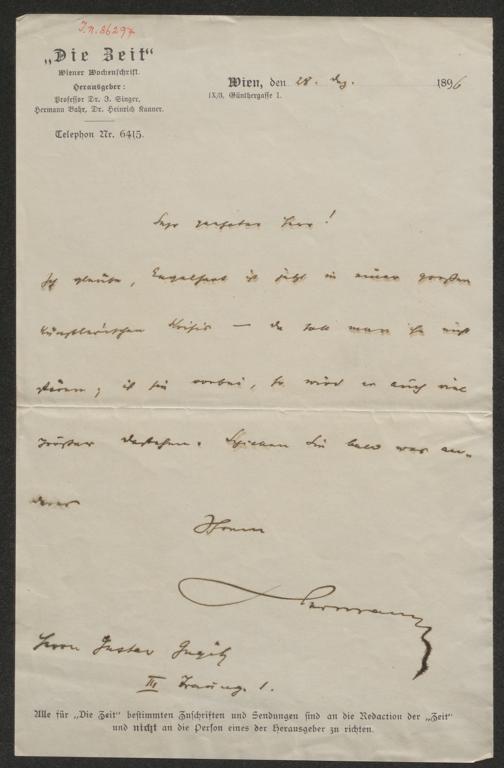 I.N. 86297
„Die Zeit“
Wiener Wochenschrift.
Herausgeber:
Professor Dr. I. Singer,
Hermann Bahr, Dr. Heinrich Kanner.
Telephon Nr. 6415.
Wien, den 28. Dez. 1896
IX/3, Günthergasse 1.
Sehr geehrter Herr!
Ich glaube, Engelhart ist jetzt in einer großen
künstlerischen Krisis — da soll man ihn nicht
stören; ist sie vorbei, so wird er auch viel
größer dastehen. Schicken Sie bald was an-
deres
Ihrem
Hermann
Herrn Gustav Gugitz
III 1.
Alle für „Die Zeit“ bestimmten Zuschriften und Sendungen sind an die Redaction der „Zeit“
und nicht an die Person eines der Herausgeber zu richten.